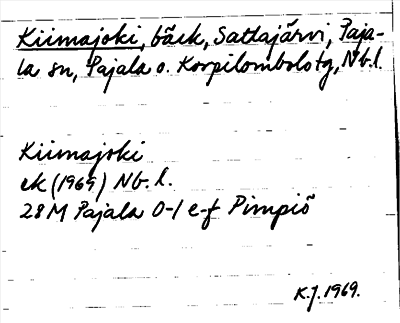 Kiimajoki, bäck, Sattajärvi, Paja-
la sn, Pajala o. Korpilombolo tg, Nb.l.
Kiimajoki
ek (1969) Nb. l.
28M Pajala 0-1 e-f Pimpiö
K.J. 1969.